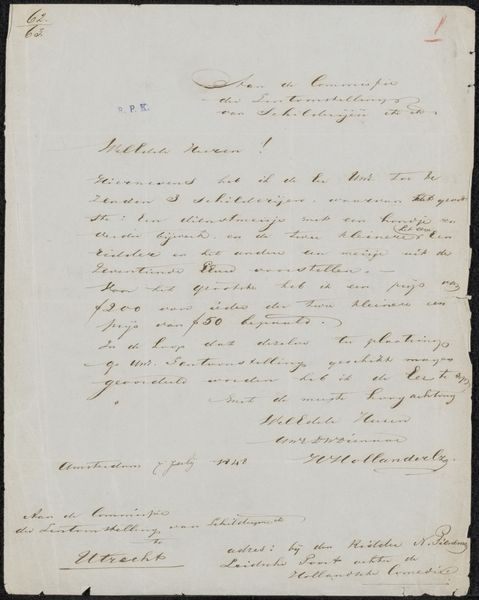 62.
63.
1
R. P. K.
Aan de Commissie
der Tentoonstelling
van Schilderijen etc etc
WelEdele Heeren !
Hiernevens heb ik de Eer UwE toe te
zenden 3 schilderijen, waarvan het groot
ste: Een dienstmeisje met een hondje en
verder bijwerk, en de twee kleinere Een
Ridder en het andere een meisje uit de
Zeventiende Eeuw voorstellen. -
Voor het grootste heb ik een prijs van
ƒ200 voor ieder der twee kleinere een
prijs van ƒ50 bepaald.
In de hoop dat dezelve ter plaatsing
op Uwe Tentoonstelling geschikt mogen
geoordeeld worden heb ik de Eer te zijn
met de meeste hoogachting
WelEdele Heeren
UwE DWDienaar
H Hollander Cz.
Amsterdam 7 July 1848
Aan de Commissie
der Tentoonstelling van Schilderijen
te
Utrecht
adres: bij den Heer N.
Leidsche Poort achter de
Hollandsche Comedie